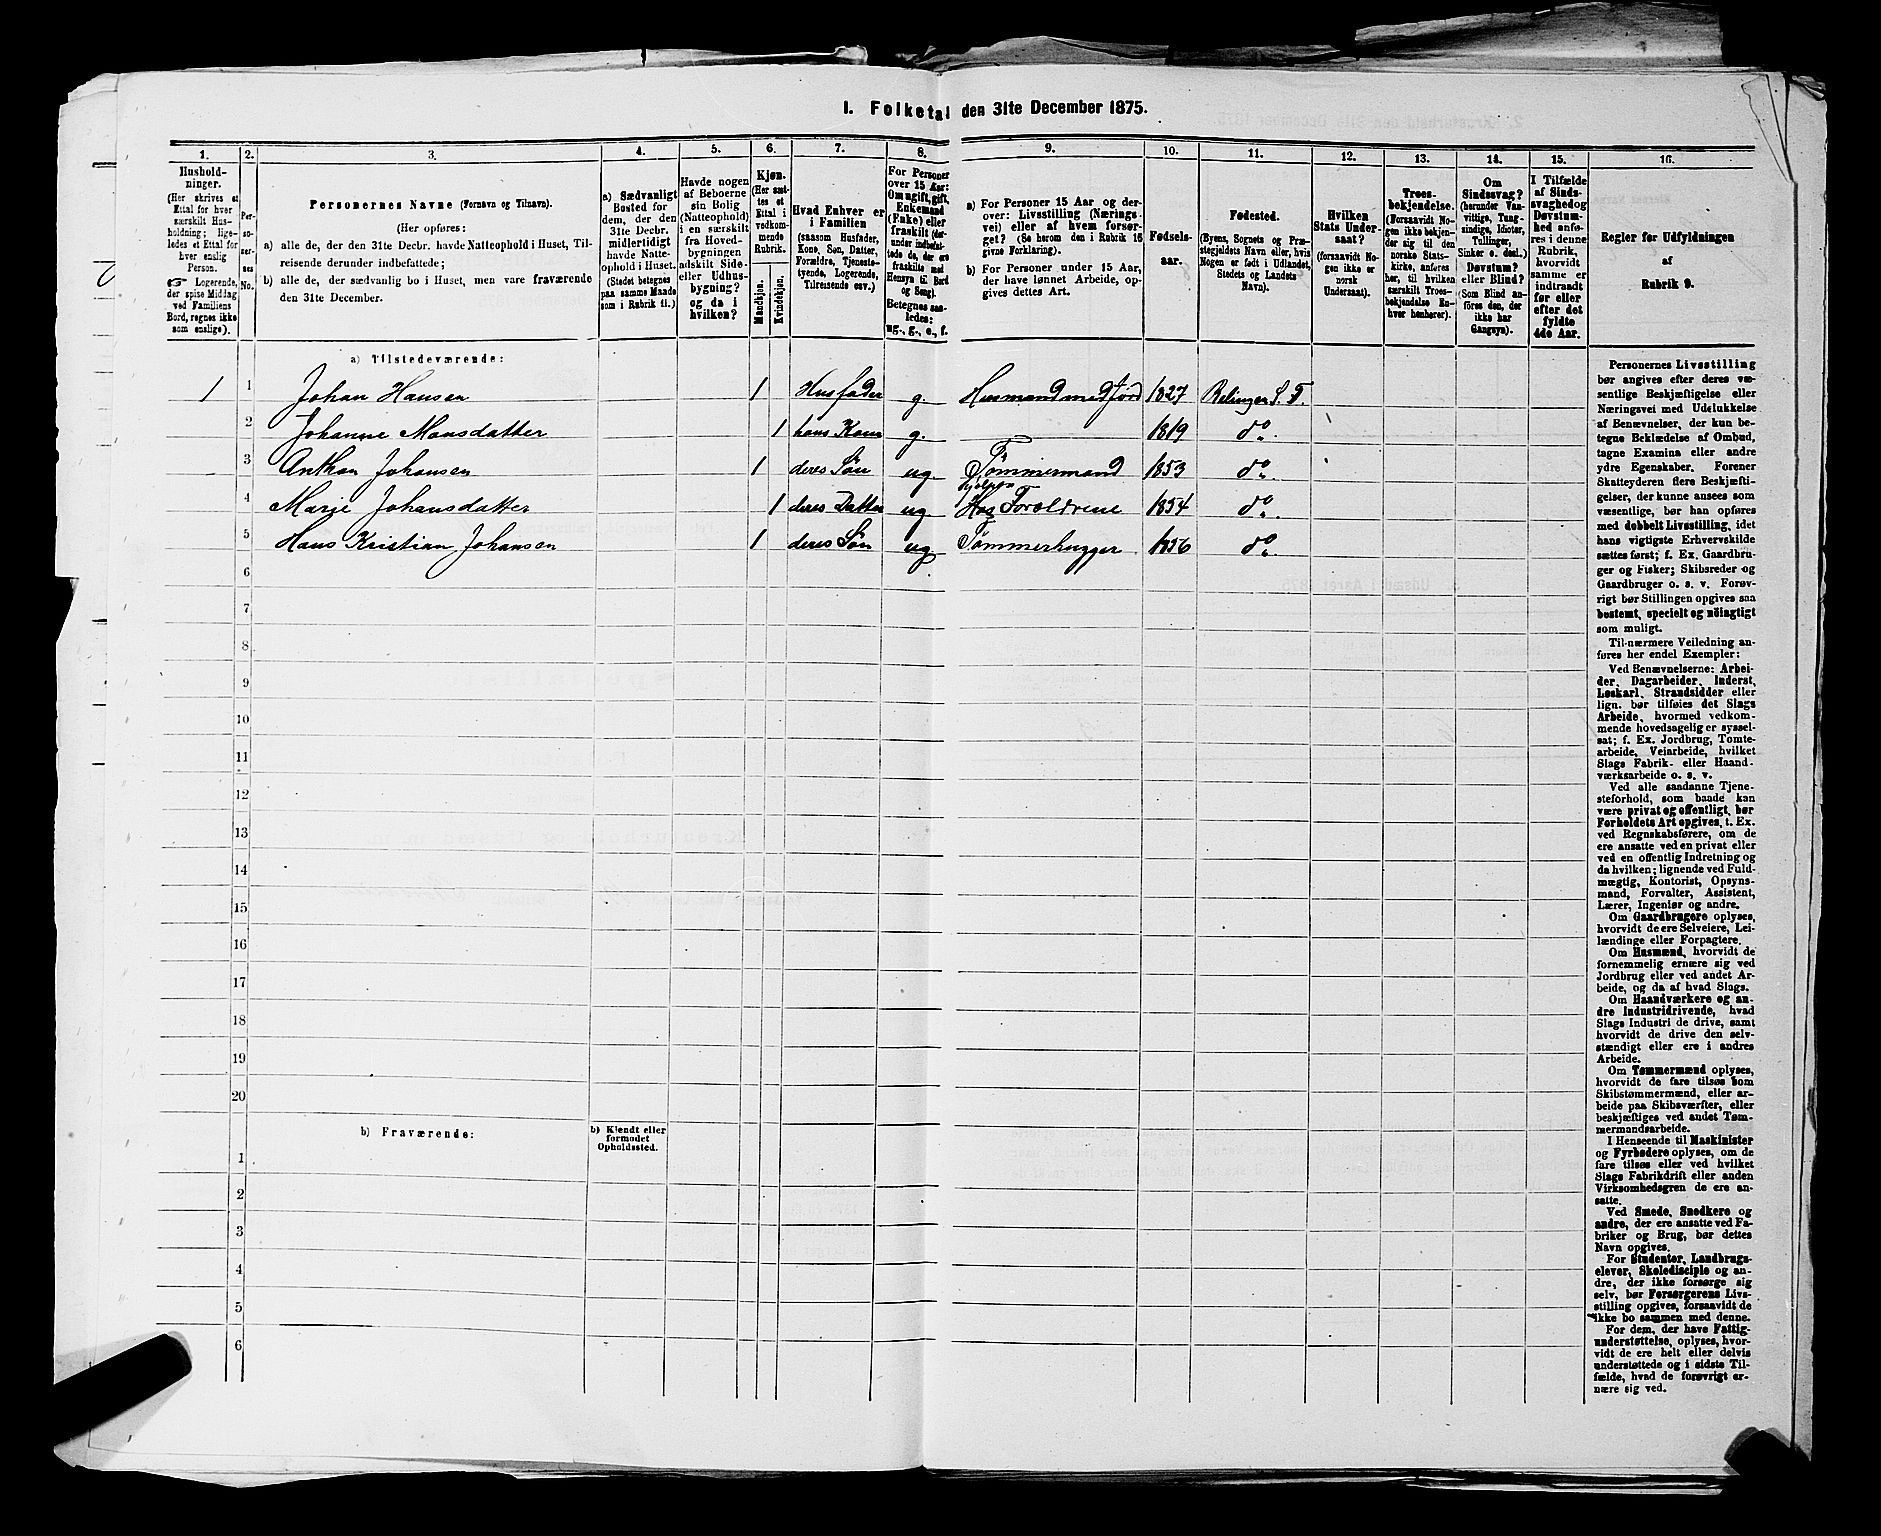 1. Folketal den 31te December 1875.
1. 2. 3. 4. 5. 6. 7. 8. 9. 10. 11. 12. 13. 14. 15. 16.
Hushold-
ninger.
(Her skrives et
Ettal for hver
særskilt Hus-
holdning; lige-
ledes et Ettal for
hver enslig
Person.
☞ Logerende,
der spise Middag
ved Familiens
Bord, regnes ikke
som enslige).
Per-
so-
ner-
nes
No.
Personernes Navne (Fornavn og Tilnavn).
(Her opføres:
a) alle de, der den 31te Decbr. havde Natteophold i Huset, Til-
reisende derunder indbefattede;
b) alle de, der sædvanlig bo i Huset, men vare fraværende
den 31te December.
a) Sædvanligt
Bosted for
dem, der den
31te Decbr.
midlertidigt
havde Natte-
ophold i Huset.
(Stedet betegnes
paa samme Maade
som i Rubrik 11.)
Havde nogen
af Beboerne
sin Bolig
(Natteophold)
i en særskilt
fra Hoved-
bygningen
adskilt Side-
eller Udhus-
bygning?
og da i
hvilken?
Kjøn.
(Her sæt-
tes et
Ettal i
vedkom-
mende
Rubrik.
Mandkjøn.
Kvindekjøn.
Hvad Enhver er
i Familien
(saasom Husfader,
Kone, Søn, Datter,
Forældre, Tjeneste-
tyende, Logerende,
Tilreisende osv.)
For Personer
over 15 Aar:
Om ugift, gift,
Enkemand
(Enke) eller
fraskilt (der-
under indbefat-
tede de, der ere
fraskilte med
Hensyn til Bord
og Seng).
Betegnes saa-
ledes:
ug., g., e., f.
a) For Personer 15 Aar og der-
over: Livsstilling (Nærings-
vei) eller af hvem forsør-
get? (Se herom den i Rubrik 16
givne Forklaring).
b) For Personer under 15 Aar,
der have lønnet Arbeide, op-
gives dettes Art.
Fødsels-
aar.
Fødested.
(Byens, Sognets og Præ-
stegjeldets Navn eller, hvis
Nogen er født i Udlandet,
Stedets og Landets
Navn).
Hvilken
Stats Under-
saat?
(forsaavidt No-
gen ikke er
norsk
Undersaat).
Troes-
bekjendelse.
(Forsaavidt No-
gen ikke bekjen-
der sig til den
norske Stats-
kirke, anføres
her, til hvilken
særskilt Troes-
bekjendelse En-
hver henhører).
Om
Sindssvag?
(herunder Van-
vittige, Tung-
sindige, Idioter,
Tullinger,
Sinker o. desl.)
Døvstum?
eller Blind?
(Som Blind an-
føres den, der
ikke har
Gangsyn).
I Tilfælde
af Sinds-
svaghed og
Døvstum-
hed anfø-
res i denne
Rubrik,
hvorvidt
samme er
indtraadt
før eller
efter det
fyldte
4de Aar.
Regler for Udfyldningen
af
Rubrik 9.
a) Tilstedeværende:
1 1 Johan Hansen 1 Husfader g. Husmand med Jord 1827 S. P.
2 Johanne Monsdatter 1 hans Kone g. 1819 do.
3 Anthon Johansen 1 deres Søn ug. Tømmermand 1853 do.
hjelper
4 Marie Johansdatter 1 deres Datter ug. Hos Forældrene 1854 do.
5 Hans Kristian Johansen 1 deres Søn ug. Tømmerhugger 1856 do.
6
7
8
9
10
11
12
13
14
15
16
17
18
19
20
b) Fraværende:
b) Kjendt eller
formodet
Opholdssted.
1
2
3
4
5
6
Personernes Livsstilling
bør angives efter deres væ-
sentlige Beskjæftigelse eller
Næringsvei med Udelukkelse
af Benævnelser, der kun be-
tegne Beklædelse af Ombud,
tagne Examina eller andre
ydre Egenskaber. Forener
Skatteyderen flere Beskjæfti-
gelser, der kunne ansees som
væsentlige, bør han opføres
med dobbelt Livsstilling, idet
hans vigtigste Erhvervskilde
sættes først; f. Ex. Gaardbru-
ger og Fisker; Skibsreder og
Gaardbruger o. s. v. Forøv-
rigt bør Stillingen opgives saa
bestemt, specielt og nöiagtigt
som muligt.
Til nærmere Veiledning an-
føres her endel Exempler:
Ved Benævnelserne: Arbei-
der, Dagarbeider, Inderst,
Løskarl, Strandsidder eller
lign. bør tilføies det Slags
Arbeide, hvormed vedkom-
mende hovedsagelig er syssel-
sat; f. Ex. Jordbrug, Tomte-
arbeide, Veiarbeide, hvilket
Slags Fabrik- eller Haand-
værksarbeide o. s. v.
Ved alle saadanne Tjene-
steforhold, som baade kan
være privat og offentligt, bør
Forholdets Art opgives, t. Ex.
ved Regnskabsførere, om de
ere ansatte ved en privat eller
ved en offentlig Indretning og
da hvilken; lignende ved Fuld-
mægtig, Kontorist, Opsyns-
mand, Forvalter, Assistent,
Lærer, Ingeniør og andre.
Om Gaardbrugere oplyses,
hvorvidt de ere Selveiere, Lei-
lændinge eller Forpagtere.
Om Husmænd, hvorvidt de
fornemmelig ernære sig ved
Jordbrug eller ved andet Ar-
beide, og da af hvad Slags.
Om Haandværkere og an-
dre Industridrivende, hvad
Slags Industri de drive, samt
hvorvidt de drive den selv-
stændigt eller ere i andres
Arbeide.
Om Tømmermænd oplyses,
hvorvidt de fare tilsøs som
Skibstømmermænd, eller ar-
beide paa Skibsværfter, eller
beskjæftiges ved andet Tøm-
mermandsarbeide.
I Henseende til Maskinister
og Fyrbødere oplyses, om de
fare tilsøs eller ved hvilket
Slags Fabrikdrift eller anden
Virksomhedsgren de ere an-
satte.
Ved Smede, Snedkere og
andre, der ere ansatte ved Fa-
briker og Brug, bør dettes
Navn opgives.
For Studenter, Landbrugs-
elever, Skoledisciple og an-
dre, der ikke forsørge sig
selv, bør Forsørgerens Livs-
stilling opgives, forsaavidt de
ikke bo sammen med denne.
For dem, der have Fattig-
understøttelse, oplyses, hvor-
vidt de ere helt eller delvis
understøttede og i sidste Til-
fælde, hvad de forøvrigt er-
nære sig ved.